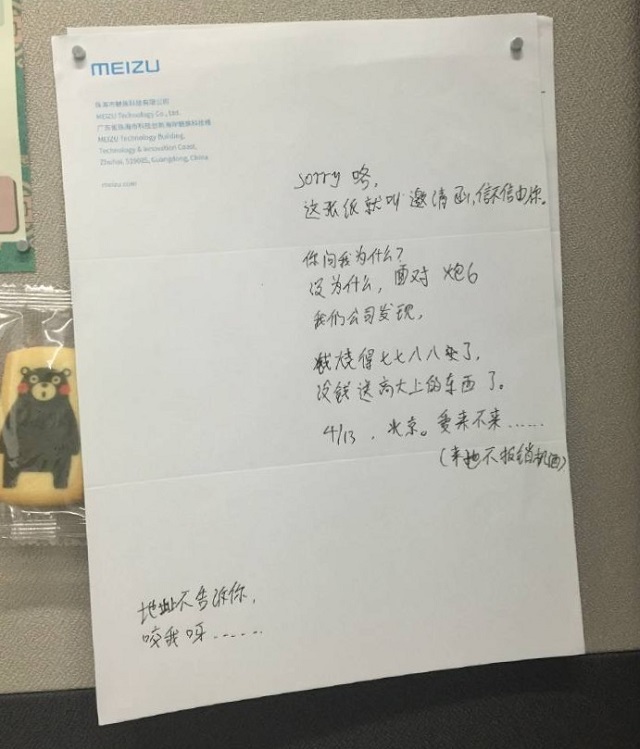 MEIZU
珠海市魅族科技有限公司
MEIZU Technology Co., Ltd.
广东省珠海市科技创新海岸魅族科技楼
MEIZU Technology Building,
Technology & Innovation Coast,
Zhuhai, 519085, Guangdong, China
meizu.com
sorry 咯，
这张纸就叫邀请函，信不信由你。
你问我为什么？
没为什么，面对 炮6
我们公司发现，
钱烧得七七八八了，
没钱送高大上的东西了。
4/13，北京。爱来不来……
（本地不报销机酒）
地址不告诉你，
咬我呀……